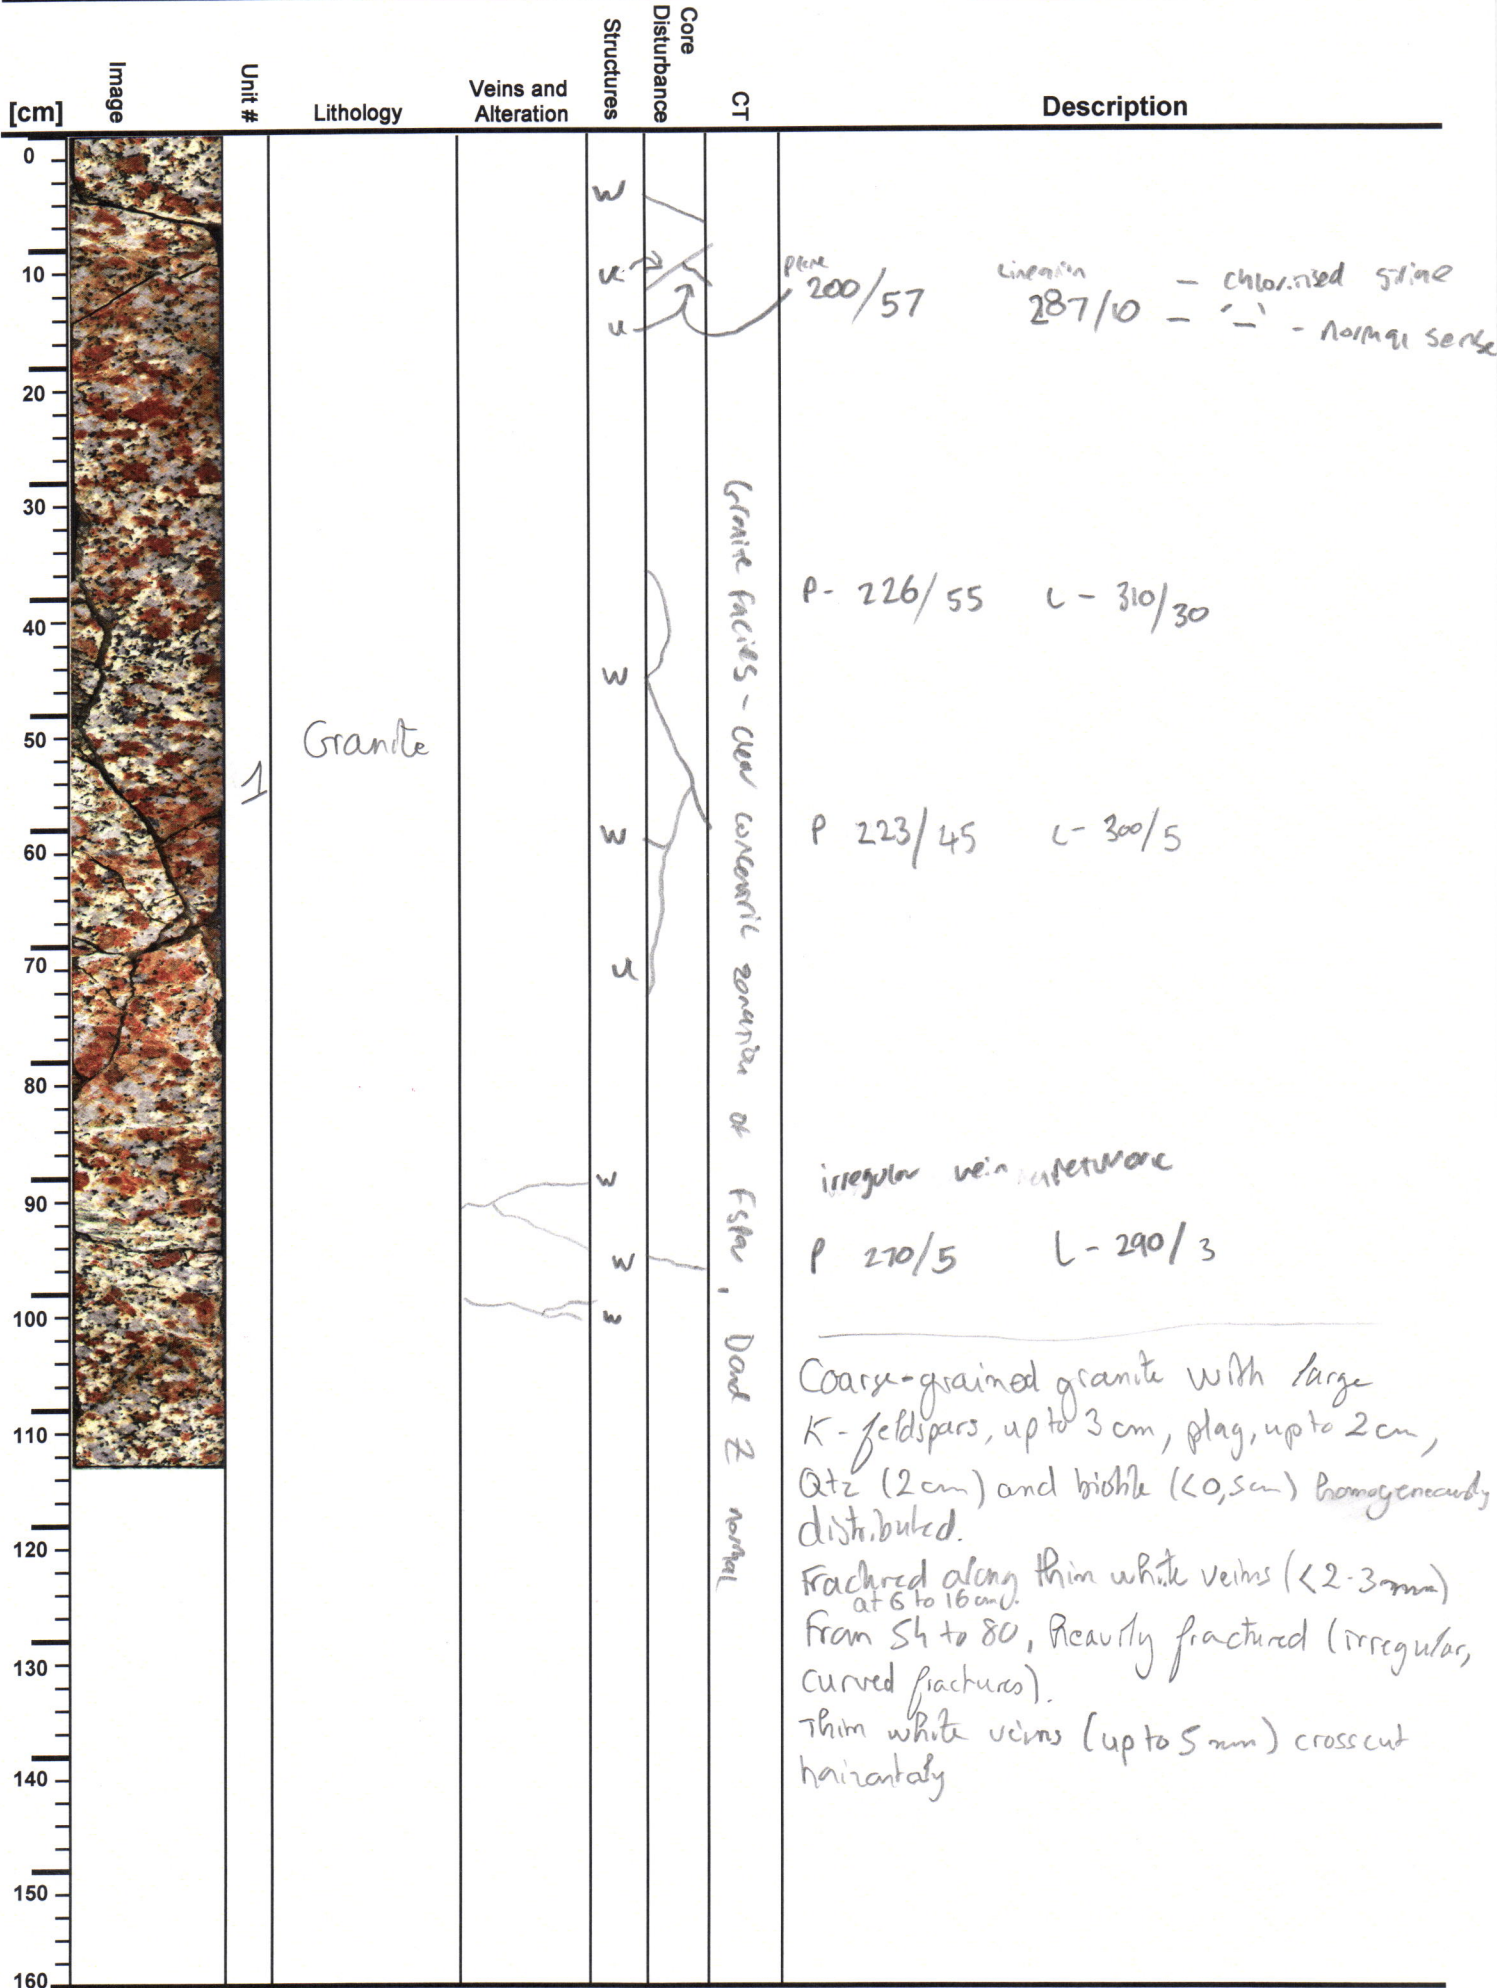 [cm]
Image
Unit #
Lithology
Veins and
Alteration
Structures
Core
Disturbance
CT
Description
0
10
20
30
40
50
60
70
80
90
100
110
120
130
140
150
160
1
Granite
W
u
u
W
W
u
W
W
W
Granite facies - clear concentric zonation of Fspar, D and Z normal
plane
200/57
Lineation
287/10
- chloritised striae
- '-' - normal sense
P- 226/55 L - 310/30
P 223/45 L- 300/5
irregular vein network
P 270/5 L- 290/3
Coarse-grained granite with large
K-feldspars, up to 3 cm, plag, up to 2 cm,
Qtz (2 cm) and biotite (<0,5cm) homogeneously
distributed.
Fractured along thin white veins (<2-3 mm)
at 6 to 16 cm.
From 54 to 80, heavily fractured (irregular,
curved fractures).
Thin white veins (up to 5 mm) crosscut
horizontaly